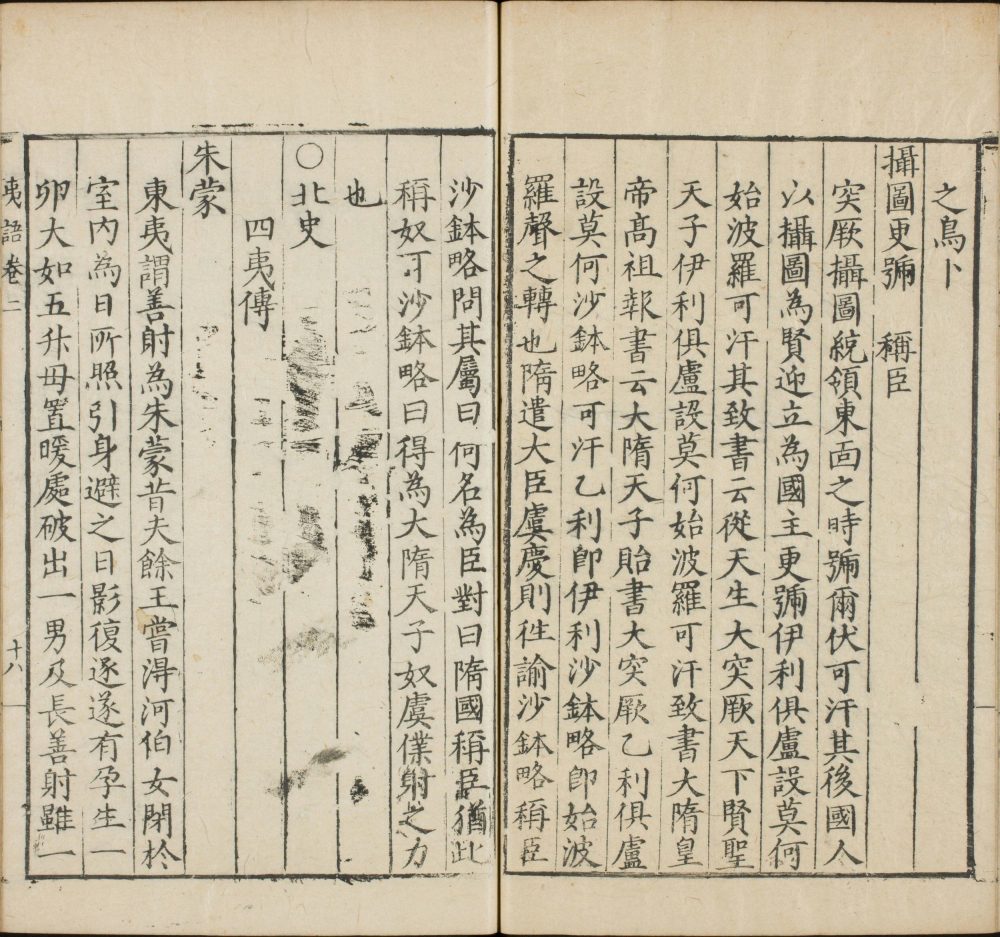 之鳥卜
攝圖更號 稱臣
突厥攝圖統領東面之時號爾伏可汗其後國人
以攝圖為賢迎立為國主更號伊利俱盧設莫何
始波羅可汗其致書云從天生大突厥天下賢聖
天子伊利俱盧設莫何始波羅可汗致書大隋皇
帝髙祖報書云大隋天子貽書大突厥乙利俱盧
設莫何沙鉢略可汗乙利卽伊利沙鉢略卽始波
羅聲之轉也隋遣大臣虞慶則徃諭沙鉢略稱臣
沙鉢略問其屬曰何名為臣對曰隋國稱臣猶此
稱奴耳沙鉢略曰得為大隋天子奴虞僕射之力
也
○北史
四夷傳
朱蒙
東夷謂善射為朱蒙昔夫餘王嘗淂河伯女閉於
室內為日所照引身避之日影復逐遂有孕生一
卵大如五升母置暖處破出一男及長善射雖一
夷語卷二
十八